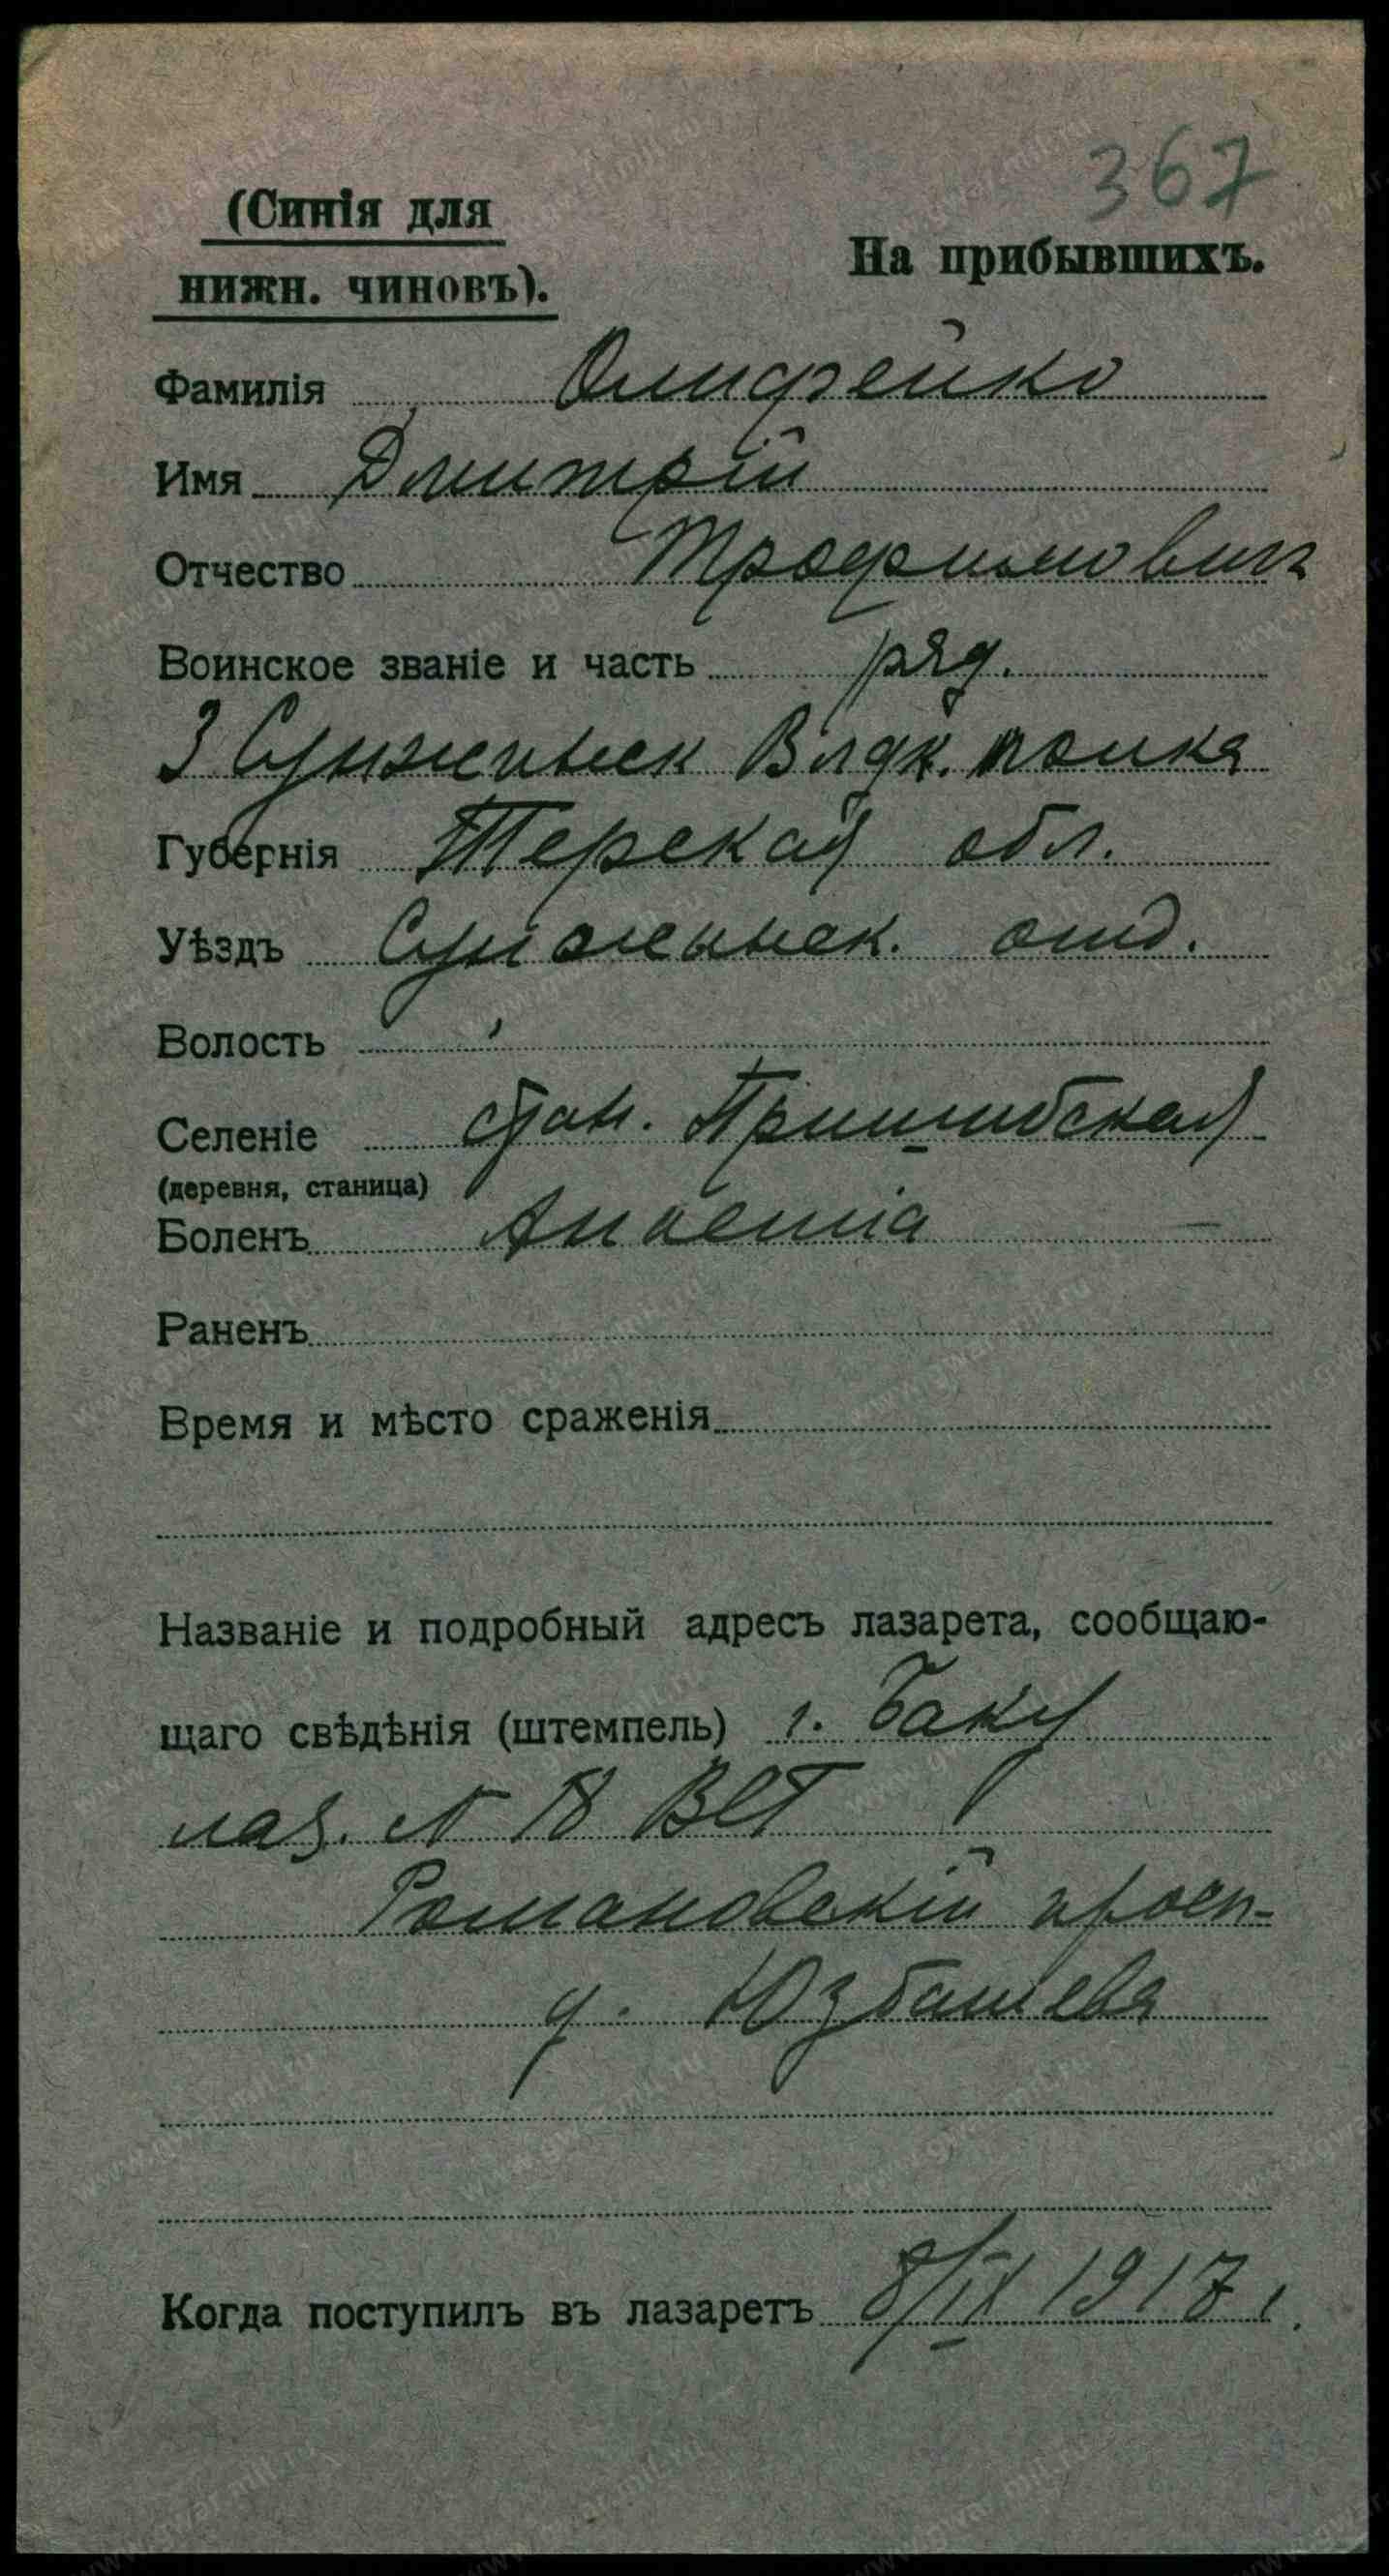 367
(Синія для
На прибывшихъ.
нижн. чиновъ).
Фамилія Олифейко
Имя Дмитрій
Отчество Трофимович
Воинское званіе и часть ряд.
3 Сунженск Влдк. полка
Губернія Терская обл.
Уѣздъ Сунженск. отд.
Волость
Селеніе стан. Пришибская
(деревня, станица)
Боленъ Anaemia
Раненъ
Время и мѣсто сраженія
Названіе и подробный адресъ лазарета, сообщаю-
щаго свѣдѣнія (штемпель) г. Баку
лаз. N 18 ВСГ
Романовскій просп-
д. Юзбашева
Когда поступилъ въ лазаретъ 8/IX 1917 г.